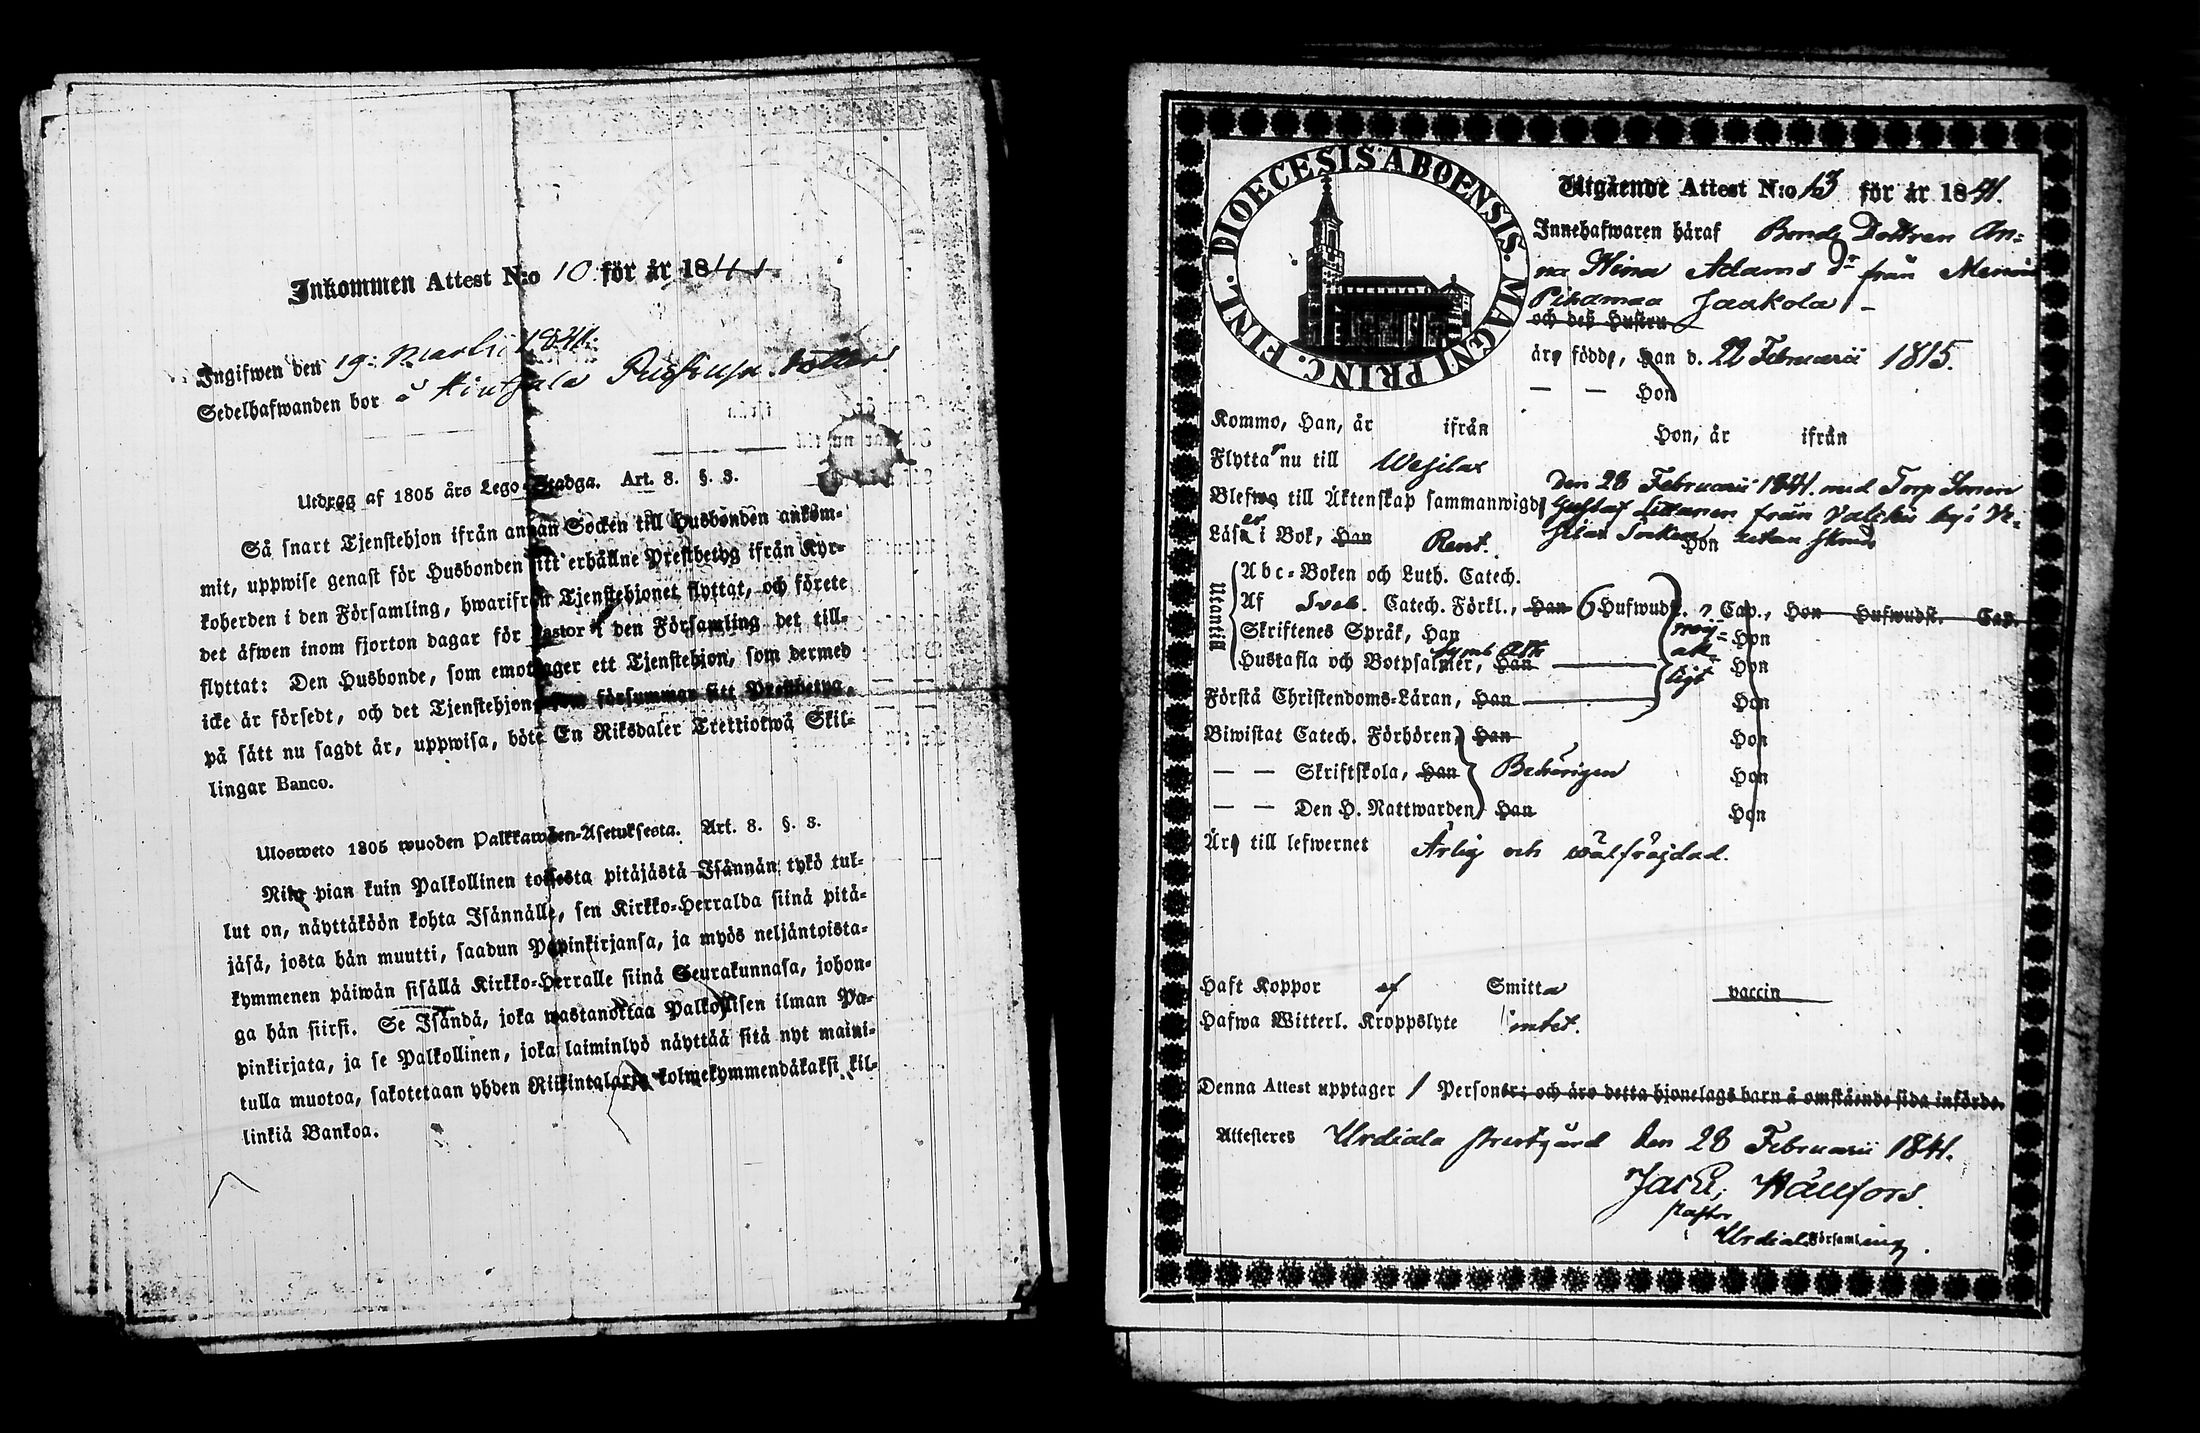 Inkommen Attest N:o 10 för år 1841.
Ingifwen den 19: Martii 1841.
Sedelhafwanden bor å
Utdrag af 1805 års Lego-Stadga. Art. 8. §. 3.
Så snart Tjenstehjon ifrån annan Socken till Husbonden ankom-
mit, uppwise genast för Husbonden sitt erhållne Prestbetyg ifrån Kyr-
koherden i den Församling, hwarifrån Tjenstehjonet flyttat, och förete
det äfwen inom fjorton dagar för Pastor i den Församling det till-
flyttat: Den Husbonde, som emottager ett Tjenstehjon, som dermed
icke är försedt, och det Tjenstehjon, som försummar sitt Prestbetyg,
på sätt nu sagdt är, uppwisa, böte En Riksdaler Trettiotwå Skil-
lingar Banco.
Ulosweto 1805 wuoden Palkkawäen-Asetuksesta. Art. 8. §. 3.
Niin pian kuin Palkollinen toisesta pitäjästä Isännän tykö tul-
lut on, näyttäköön kohta Isännälle, sen Kirkko-Herralda siinä pitä-
jäsä, josta hän muutti, saadun Papinkirjansa, ja myös neljäntoista-
kymmenen päiwän sisällä Kirkko-Herralle siinä Seurakunnasa, johon-
ga hän siirsi. Se Isändä, joka wastanottaa Palkollisen ilman Pa-
pinkirjata, ja se Palkollinen, joka laiminlyö näyttää sitä nyt maini-
tulla muotoa, sakotetaan yhden Riikintalarin kolmekymmendäkaksi kil-
linkiä Bankoa.
FINL. DIOECESIS ABOENSIS. MAGNI PRINC.
Utgående Attest N:o 13 för år 1841.
Innehafwaren häraf Bonde Dottren An-
na Stina Adams Dr från
Pihamaa Jaakola
och deß Hustru
äro födde, Han d. 22 Februarii 1815.
— — Hon
Kommo, Han, år ifrån Hon, år ifrån
Flyttar nu till Wesilax
Blefwo till Äktenskap sammanwigde den 28 Februarii 1841. med Torp Sonen
Gustaf från by i We-
Läser i Bok, Han Rent. silax Socken Hon utan
Utantill
Abc-Boken och Luth. Catech.
Af Sveb. Catech. Förkl., Han 6 Hufwudst. 7 Cap., Hon Hufwudst. Cap.
Skriftenes Språk, Han nöj- Hon
Symb. Ath.
Hustafla och Botpsalmer, Han akt Hon
ligt
Förstå Christendoms-Läran, Han Hon
Biwistat Catech. Förhören, Han Hon
— — Skriftskola, Han Behörigen Hon
— — Den H. Nattwarden, Han Hon
Äro till lefwernet Ärlig och wälfräjdad.
Haft Koppor af Smitta vaccin
Hafwa Witterl. Kroppslyte intet.
Denna Attest upptager 1 Personer; och äro detta hjonelags barn å omstående sida införde.
Attesteras Urdiala Prestgård den 28 Februarii 1841.
Jac. E. Hällfors.
Pastor
i Urdiala Församling.